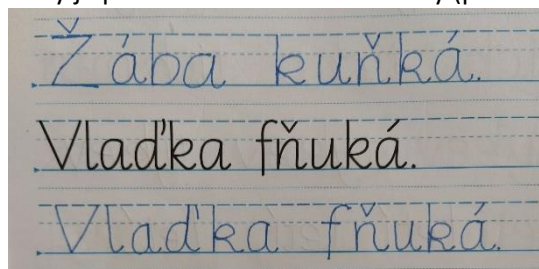 Žába kuňká.
Vlaďka fňuká.
Vlaďka fňuká.